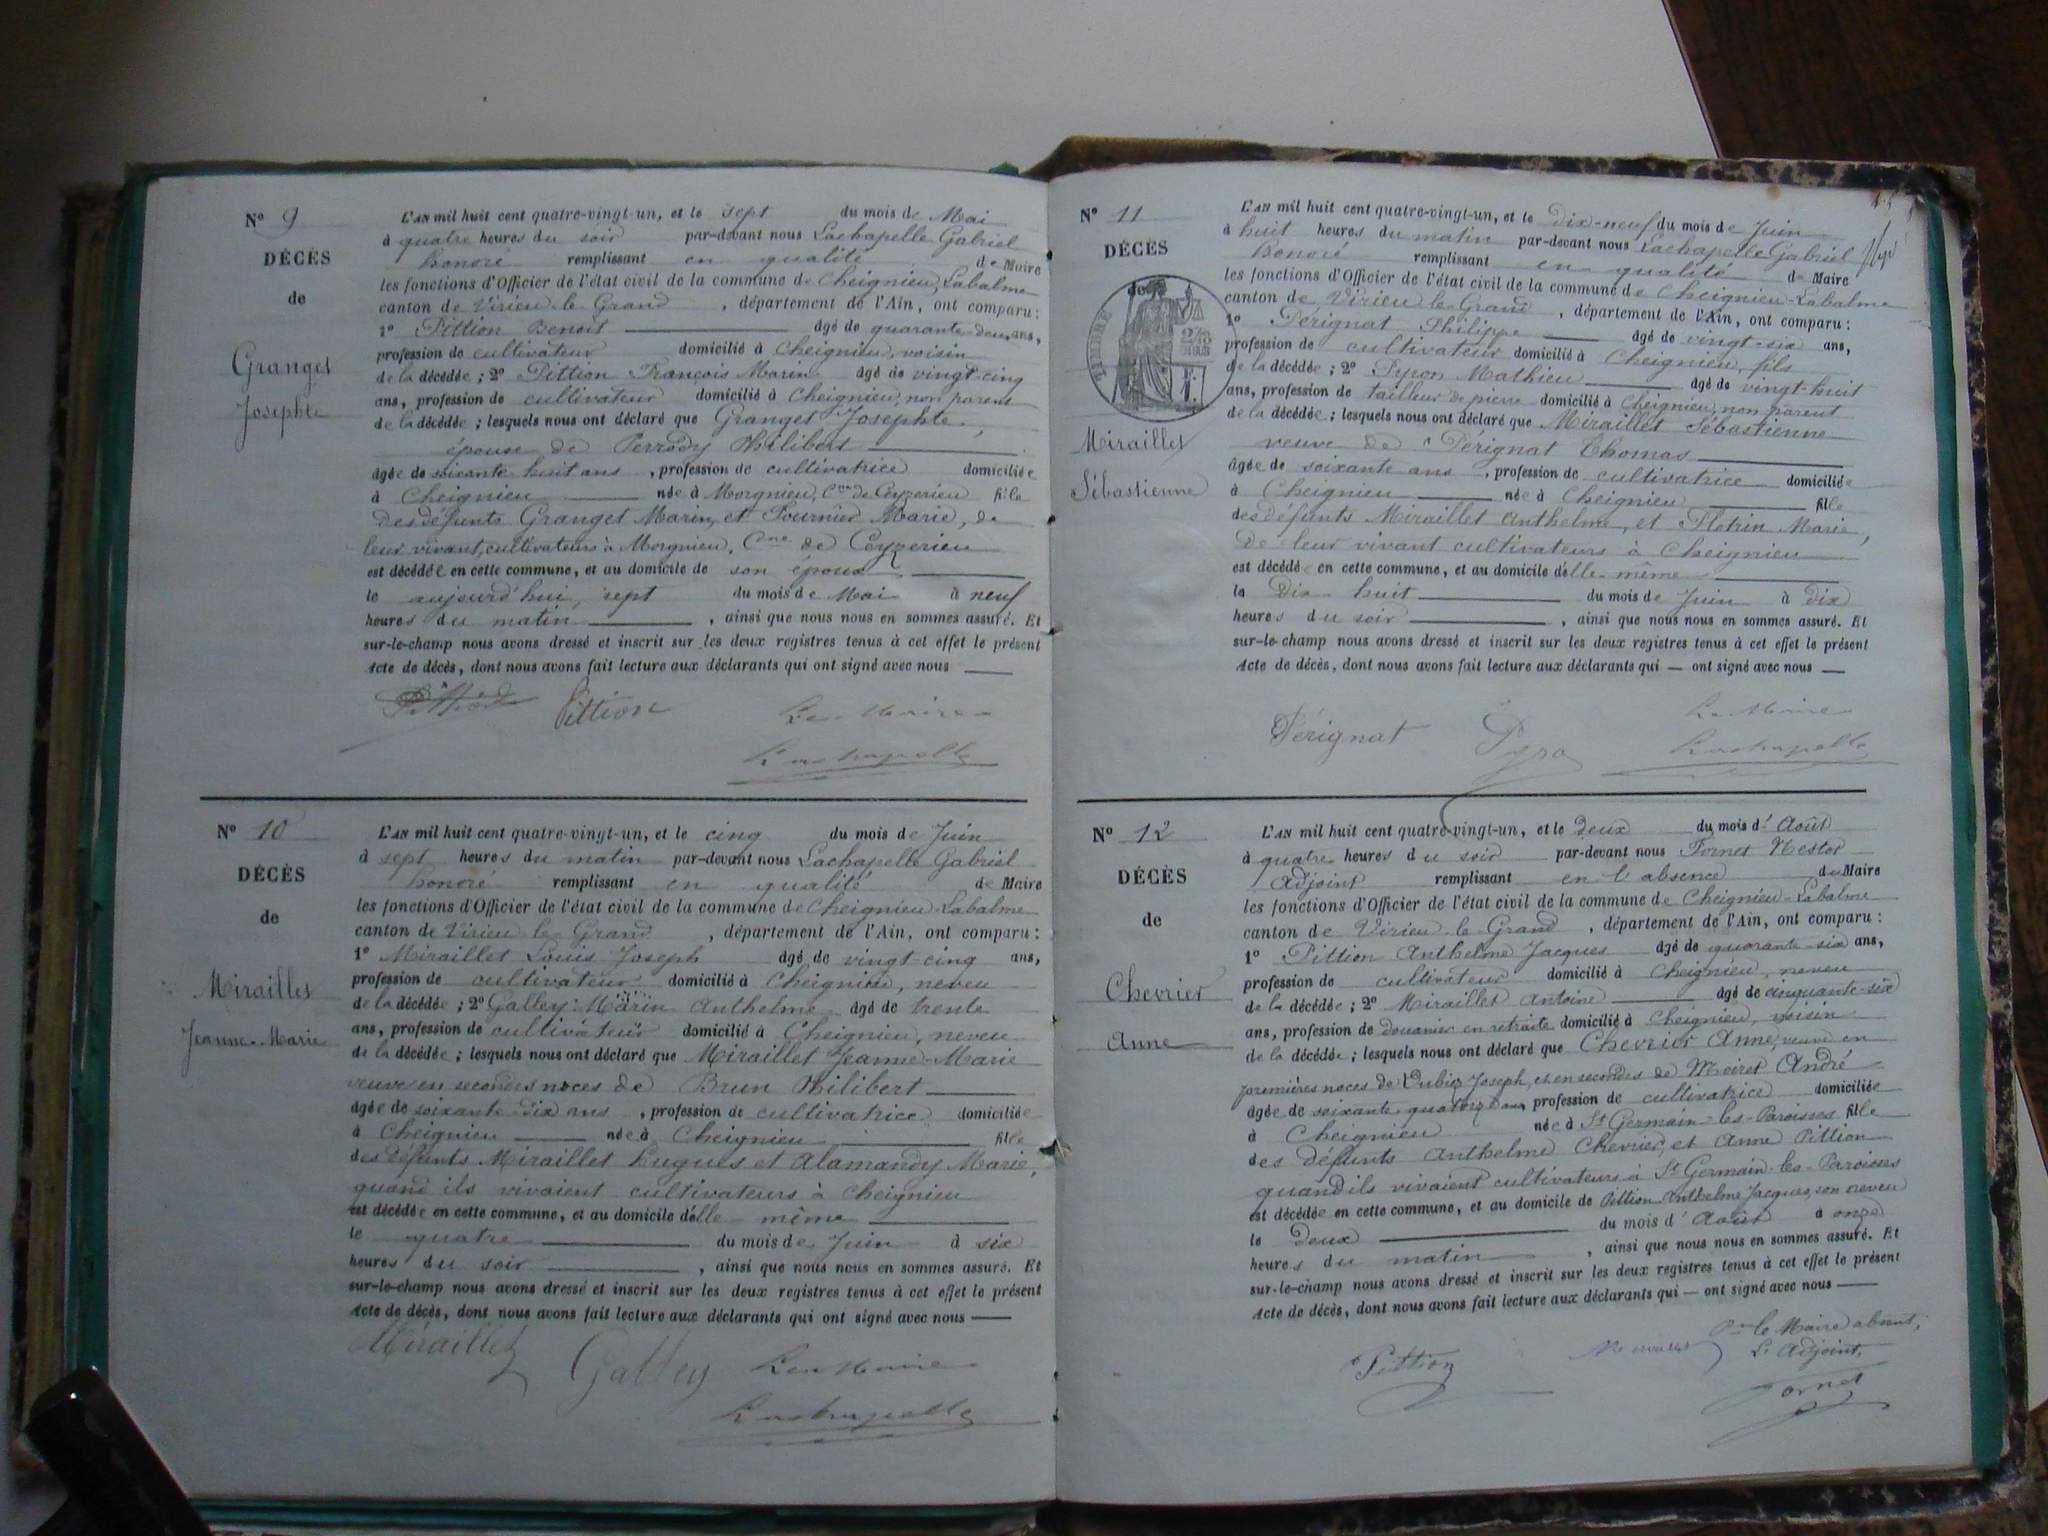 Nº 9
DÉCÈS
de
Granget
Josephte
L'AN mil huit cent quatre-vingt-un, et le sept du mois de Mai
à quatre heures du soir par-devant nous Lachapelle Gabriel
honoré remplissant en qualité de Maire
les fonctions d'Officier de l'état civil de la commune de Cheignieu Labalme
canton de Virieu-le-Grand , département de l'Ain, ont comparu :
1º Pittion Benoit âgé de quarante deux ans,
profession de cultivateur domicilié à Cheignieu, voisin
de la décédée ; 2º Pittion François Marin âgé de vingt-cinq
ans, profession de cultivateur domicilié à Cheignieu, non parent
de la décédée ; lesquels nous ont déclaré que Granget Josephte,
épouse de Perrody Philibert
âgée de soixante huit ans , profession de cultivatrice domiciliée
à Cheignieu née à Morgnieu, Cne de Ceyzerieu fille
des défunts Granget Marin, et Fournier Marie, de
leur vivant, cultivateurs à Morgnieu, Cne de Ceyzerieu
est décédée en cette commune, et au domicile de son époux
le aujourd'hui, sept du mois de Mai à neuf
heures du matin , ainsi que nous nous en sommes assuré. Et
sur-le-champ nous avons dressé et inscrit sur les deux registres tenus à cet effet le présent
Acte de décès, dont nous avons fait lecture aux déclarants qui ont signé avec nous
Pittion Le Maire
Lachapelle
Nº 10
DÉCÈS
de
Miraillet
Jeanne-Marie
L'AN mil huit cent quatre-vingt-un, et le cinq du mois de Juin
à sept heures du matin par-devant nous Lachapelle Gabriel
honoré remplissant en qualité de Maire
les fonctions d'Officier de l'état civil de la commune de Cheignieu-Labalme
canton de Virieu-le-Grand , département de l'Ain, ont comparu :
1º Miraillet Louis Joseph âgé de vingt-cinq ans,
profession de cultivateur domicilié à Cheignieu, neveu
de la décédée ; 2º Galley Marin Anthelme âgé de trente
ans, profession de cultivateur domicilié à Cheignieu, neveu
de la décédée ; lesquels nous ont déclaré que Miraillet Jeanne-Marie
veuve en secondes noces de Brun Philibert
âgée de soixante-dix ans , profession de cultivatrice domiciliée
à Cheignieu née à Cheignieu fille
des défunts Miraillet hugues et Alamandy Marie,
quand ils vivaient cultivateurs à Cheignieu
est décédée en cette commune, et au domicile d'elle-même
le quatre du mois de Juin à six
heures du soir , ainsi que nous nous en sommes assuré. Et
sur-le-champ nous avons dressé et inscrit sur les deux registres tenus à cet effet le présent
Acte de décès, dont nous avons fait lecture aux déclarants qui ont signé avec nous
Miraillet Galley Le Maire
Lachapelle
Nº 11
DÉCÈS
de
TIMBRE
Miraillet
Sébastienne
L'AN mil huit cent quatre-vingt-un, et le Dix-neuf du mois de Juin
à huit heures du matin par-devant nous Lachapelle Gabriel
honoré remplissant en qualité de Maire
les fonctions d'Officier de l'état civil de la commune de Cheignieu-Labalme
canton de Virieu-le-Grand , département de l'Ain, ont comparu :
1º Pérignat Philippe âgé de vingt-six ans,
profession de cultivateur domicilié à Cheignieu, fils
de la décédée ; 2º Pyron Mathieu âgé de vingt-huit
ans, profession de tailleur de pierre domicilié à Cheignieu, non parent
de la décédée ; lesquels nous ont déclaré que Miraillet Sébastienne
veuve de Pérignat Thomas
âgée de soixante ans , profession de cultivatrice domiciliée
à Cheignieu née à Cheignieu fille
des défunts Miraillet Anthelme, et Marie,
De leur vivant cultivateurs à Cheignieu
est décédée en cette commune, et au domicile d'elle-même
le Dix huit du mois de Juin à dix
heures du soir , ainsi que nous nous en sommes assuré. Et
sur-le-champ nous avons dressé et inscrit sur les deux registres tenus à cet effet le présent
Acte de décès, dont nous avons fait lecture aux déclarants qui — ont signé avec nous
Pérignat Le Maire
Lachapelle
Nº 12
DÉCÈS
de
Chevrier
Anne
L'AN mil huit cent quatre-vingt-un, et le Deux du mois d'Août
à quatre heures du soir par-devant nous Fornet Nestor
Adjoint remplissant en l'absence du Maire
les fonctions d'Officier de l'état civil de la commune de Cheignieu-Labalme
canton de Virieu-le-Grand , département de l'Ain, ont comparu :
1º Pittion Anthelme Jacques âgé de quarante-six ans,
profession de cultivateur domicilié à Cheignieu, neveu
de la décédée ; 2º Miraillet Antoine âgé de cinquante-six
ans, profession de douanier en retraite domicilié à Cheignieu, voisin
de la décédée ; lesquels nous ont déclaré que Chevrier Anne, veuve en
premières noces de Joseph, et en secondes de Moiret André
âgée de soixante quatorze ans, profession de cultivatrice domiciliée
à Cheignieu née à St Germain-les-Paroisses fille
des défunts Anthelme Chevrier, et Anne Pittion
quand ils vivaient cultivateurs à St Germain-les-Paroisses
est décédée en cette commune, et au domicile de Pittion Anthelme Jacques, son neveu
le Deux du mois d'Août à onze
heures du matin , ainsi que nous nous en sommes assuré. Et
sur-le-champ nous avons dressé et inscrit sur les deux registres tenus à cet effet le présent
Acte de décès, dont nous avons fait lecture aux déclarants qui — ont signé avec nous
Pr le Maire absent,
Pittion L'Adjoint,
Fornet